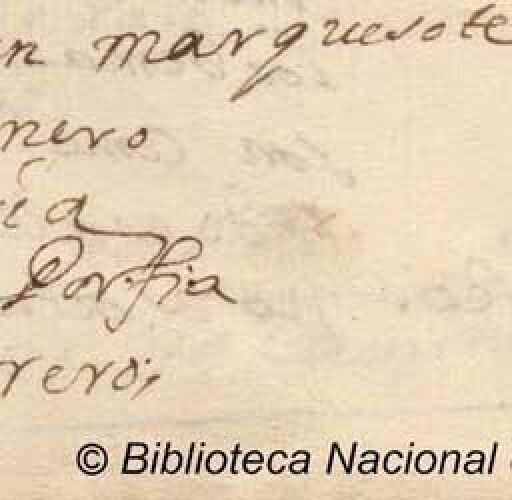 n marquesote
nero
ia
Porfia
rero;
© Biblioteca Nacional